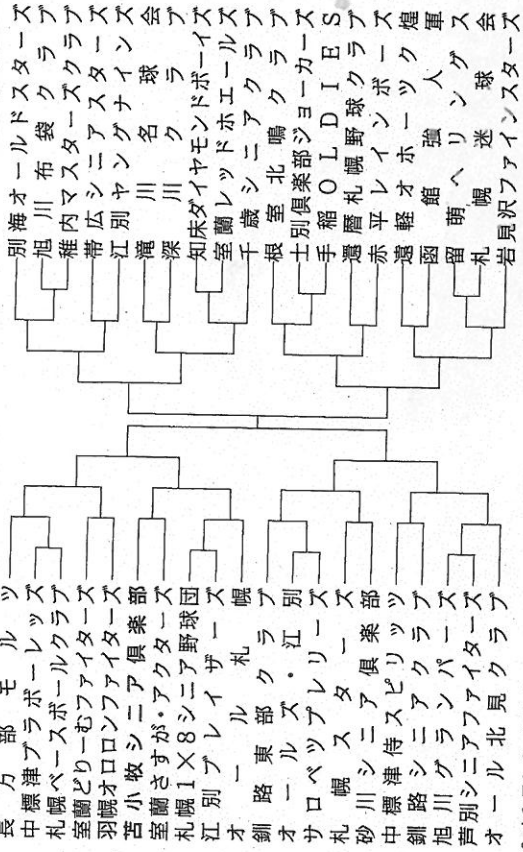 別海オールドスターズ
旭川布袋クラブ
稚内マスターズクラブ
帯広シニアスターズ
江別ヤングナインズ
滝川名球会
深川クラブ
知床ダイヤモンドボーイズ
室蘭レッドホエールズ
千歳シニアクラブ
根室北鳴クラブ
士別倶楽部ジョーカーズ
手稲OLDIES
還暦札幌野球クラブ
赤平レインボーズ
遠軽オホーツク煌
函館強人軍
留萌ヘリングス
札幌迷球会
岩見沢ファインスターズ
長万部モルツ
中標津ブラボーレッズ
札幌ベースボールクラブ
室蘭どりーむファイターズ
羽幌オロロンファイターズ
苫小牧シニア倶楽部
室蘭さすが・アクターズ
札幌1×8シニア野球団
江別ブレイザーズ
オール札幌
釧路東部クラブ
オールズ・江別
サロベツプレリーズ
札幌スターズ
砂川シニア倶楽部
中標津侍スピリッツ
釧路シニアクラブ
旭川グランパーズ
芦別シニアファイターズ
オール北見クラブ